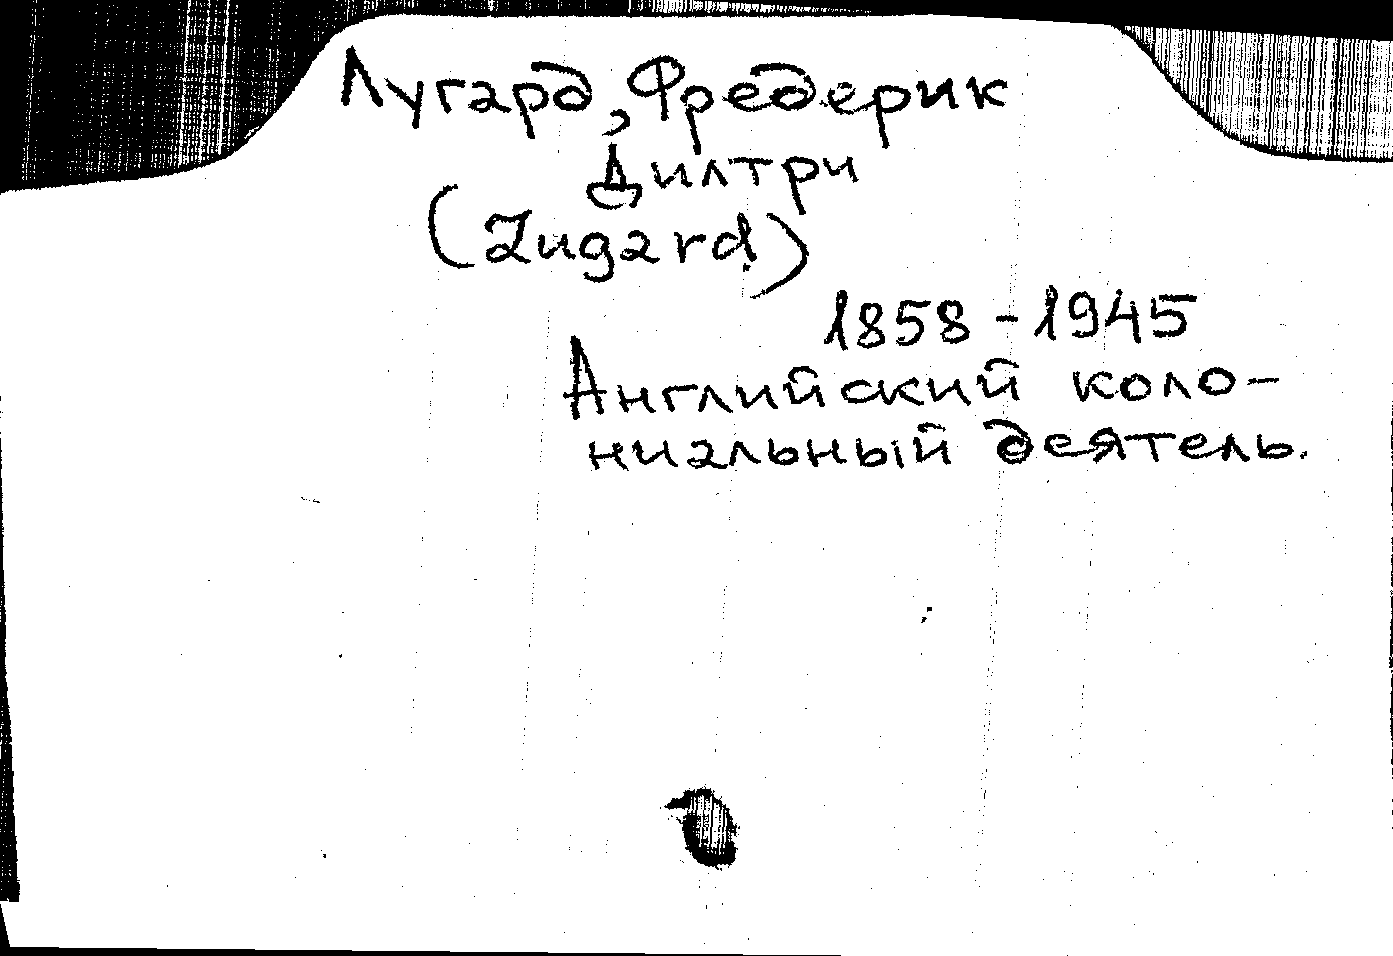 Лугард, Фредерик
Дилтри
(Lugard)
1858-1945
Английский коло-
ниальный деятель.